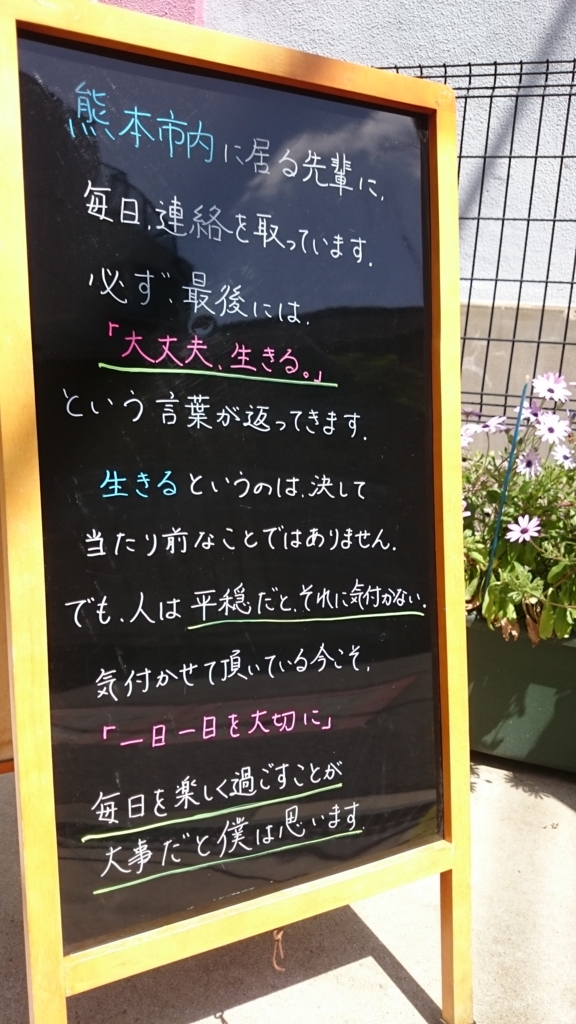 熊本市内に居る先輩に、
毎日、連絡を取っています。
必ず、最後には、
「大丈夫、生きる。」
という言葉が返ってきます。
生きるというのは、決して
当たり前なことではありません。
でも、人は平穏だと、それに気付かない。
気付かせて頂いている今こそ、
「一日一日を大切に」
毎日を楽しく過ごすことが
大事だと僕は思います。